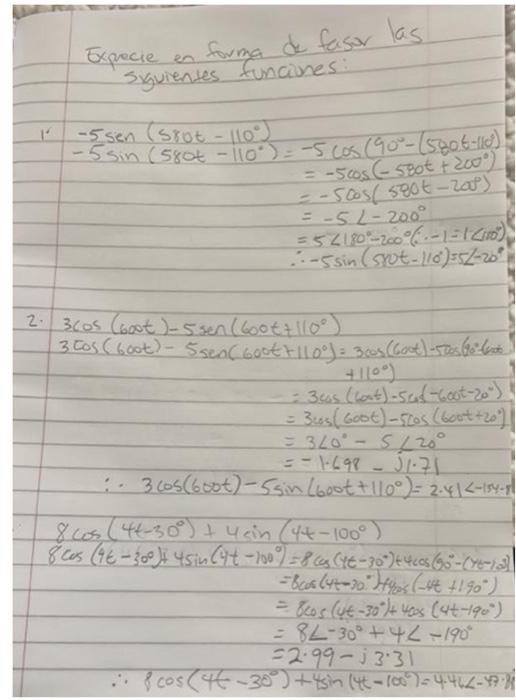 Exprecie en forma de fasor las
siguientes funciones:
1. -5sen (580t - 110°)
-5sin (580t - 110°) = -5 cos(90° - (580t-110)
= -5cos(-580t + 200°)
= -5cos( 580t - 200°)
= -5∠-200°
= 5∠180°-200° (∵ -1 = 1∠180°)
∴ -5sin(580t-110°) = 5∠-20°
2. 3cos (600t) - 5sen(600t+110°)
3cos(600t) - 5sen(600t+110°) = 3cos(600t) - 5cos(90°-(600t
+110°)
= 3cos (600t) - 5cos(-600t-20°)
= 3cos(600t) - 5cos (600t+20°)
= 3∠0° - 5∠20°
= -1.698 - j1.71
∴ 3cos(600t) - 5sin(600t+110°) = 2.41∠-134.8
8cos (4t-30°) + 4sin (4t-100°)
8cos (4t-30°) + 4sin(4t-100°) = 8cos (4t-30°)+4cos(90°-(4t-100)
= 8cos(4t-30°)+4cos(-4t+190°)
= 8cos(4t-30°)+4cos (4t-190°)
= 8∠-30° + 4∠-190°
= 2.99 - j3.31
∴ 8cos(4t-30°) + 4sin(4t-100°) = 4.46∠-47.9